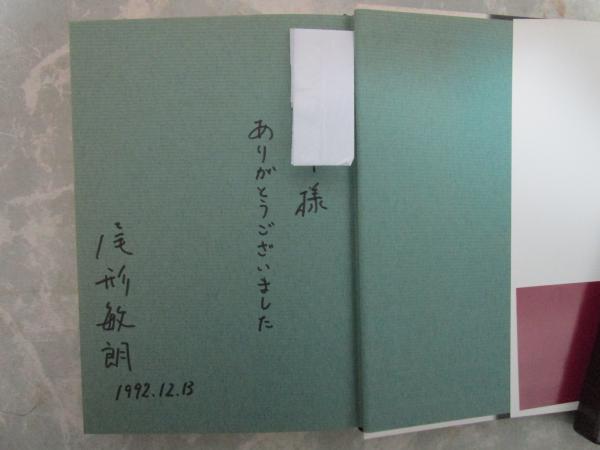 様
ありがとうございました
尾形敏朗
1992.12.13